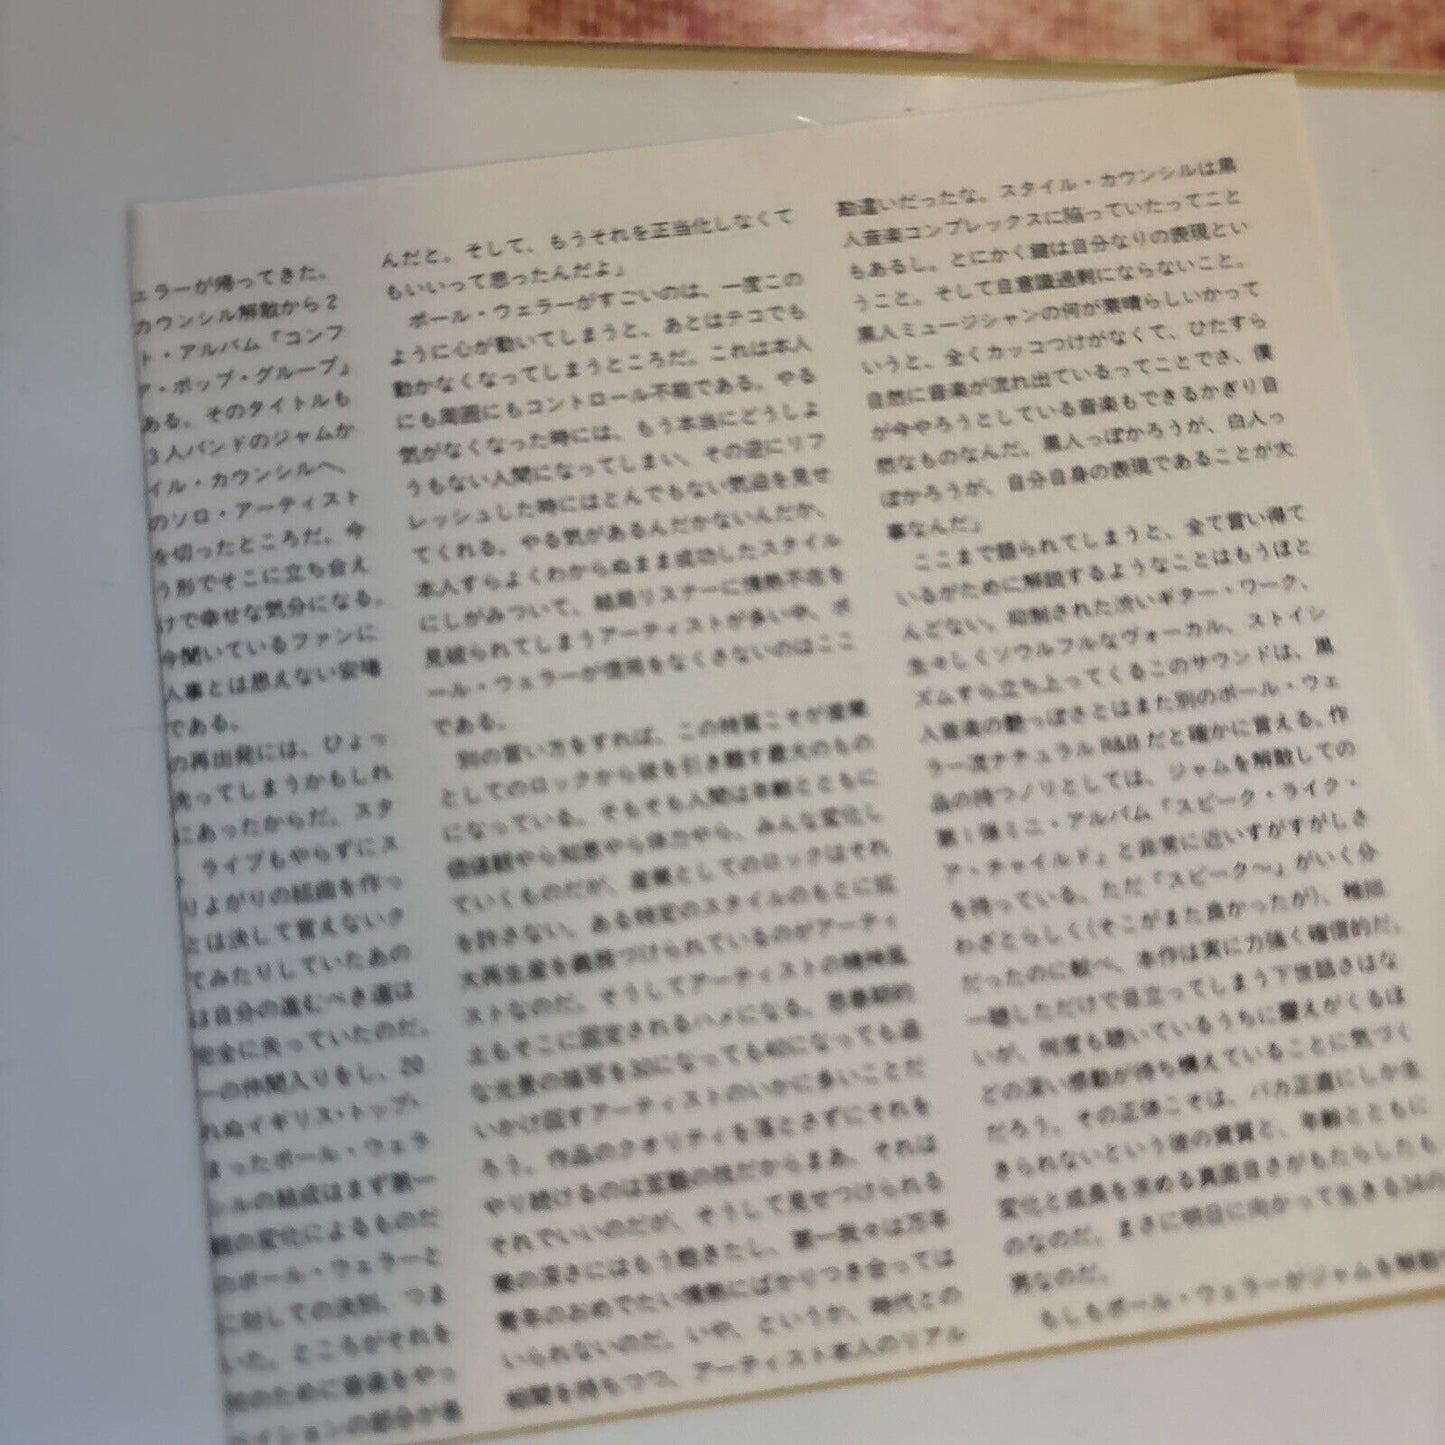 ェラーが帰ってきた。
カウンシル解散から2
ト・アルバム「コンフ
ア・ポップ・グループ」
ある。そのタイトルも
3人バンドのジャムか
イル・カウンシルへ、
のソロ・アーティスト
を切ったところだ。今
う形でそこに立ち会え
けで幸せな気分になる。
今聞いているファンに
人事とは思えない安堵
である。
の再出発には、ひょっ
失ってしまうかもしれ
にあったからだ。スタ
ライブもやらずにス
りよがりの組曲を作っ
とは決して言えないク
てみたりしていたあの
は自分の進むべき道は
完全に失っていたのだ。
一の仲間入りをし、20
れぬイギリス・トップ、
まったポール・ウェラ
シルの結成はまず第一
観の変化によるものだ
のポール・ウェラーと
に対しての決別、つま
いた。ところがそれを
別のために音楽をやっ
んだと。そして、もうそれを正当化しなくて
もいいって思ったんだよ」
ポール・ウェラーがすごいのは、一度この
ように心が動いてしまうと、あとはテコでも
動かなくなってしまうところだ。これは本人
にも周囲にもコントロール不能である。やる
気がなくなった時には、もう本当にどうしよ
うもない人間になってしまい、その逆にリフ
レッシュした時にはとんでもない気迫を見せ
てくれる。やる気があるんだかないんだか、
本人すらよくわからぬまま成功したスタイル
にしがみついて、結局リスナーに情熱不在を
見破られてしまうアーティストが多い中、ポ
ール・ウェラーが信用をなくさないのはここ
である。
別の言い方をすれば、この特質こそが産業
としてのロックから彼を引き離す最大のもの
になっている。そもそも人間は年齢とともに
価値観やら知恵やら体力やら、みんな変化し
ていくものだが、産業としてのロックはそれ
を許さない。ある特定のスタイルのもとに拡
大再生産を義務づけられているのがアーティ
ストなのだ。そうしてアーティストの精神風
土もそこに固定されるハメになる。思春期的
な光景の描写を30になっても40になっても追
いかけ回すアーティストのいかに多いことだ
ろう。作品のクオリティを落とさずにそれを
やり続けるのは至難の技だからまあ、それは
それでいいのだが、そうして見せつけられる
業の深さにはもう飽きたし、第一我々は万年
青年のおめでたい情熱にばかりつき合っては
いられないのだ。いや、というか、時代との
相関を持ちつつ、アーティスト本人のリアル
勘違いだったな。スタイル・カウンシルは黒
人音楽コンプレックスに陥っていたってこと
もあるし。とにかく鍵は自分なりの表現とい
うこと。そして自意識過剰にならないこと。
黒人ミュージシャンの何が素晴らしいかって
いうと、全くカッコつけがなくて、ひたすら
自然に音楽が流れ出ているってことでさ、僕
が今やろうとしている音楽もできるかぎり自
然なものなんだ。黒人っぽかろうが、白人っ
ぽかろうが、自分自身の表現であることが大
事なんだ」
ここまで語られてしまうと、全て言い得て
いるがために解説するようなことはもうほと
んどない。抑制された渋いギター・ワーク、
生々しくソウルフルなヴォーカル、ストイシ
ズムすら立ち上ってくるこのサウンドは、黒
人音楽の艶っぽさとはまた別のポール・ウェ
ラー流ナチュラルR&Bだと確かに言える。作
品の持つノリとしては、ジャムを解散しての
第1弾ミニ・アルバム「スピーク・ライク・
ア・チャイルド」と非常に近いすがすがしさ
を持っている。ただ「スピーク～」がいく分
わざとらしく(そこがまた良かったが)、稚拙
だったのに較べ、本作は実に力強く確信的だ。
一聴しただけで目立ってしまう下世話さはな
いが、何度も聴いているうちに震えがくるほ
どの深い感動が待ち構えていることに気づく
だろう。その正体こそは、バカ正直にしか生
きられないという彼の資質と、年齢とともに
変化と成長を求める真面目さがもたらしたも
のなのだ。まさに明日に向かって生きる34の
男なのだ。
もしもポール・ウェラーがジャムを解散